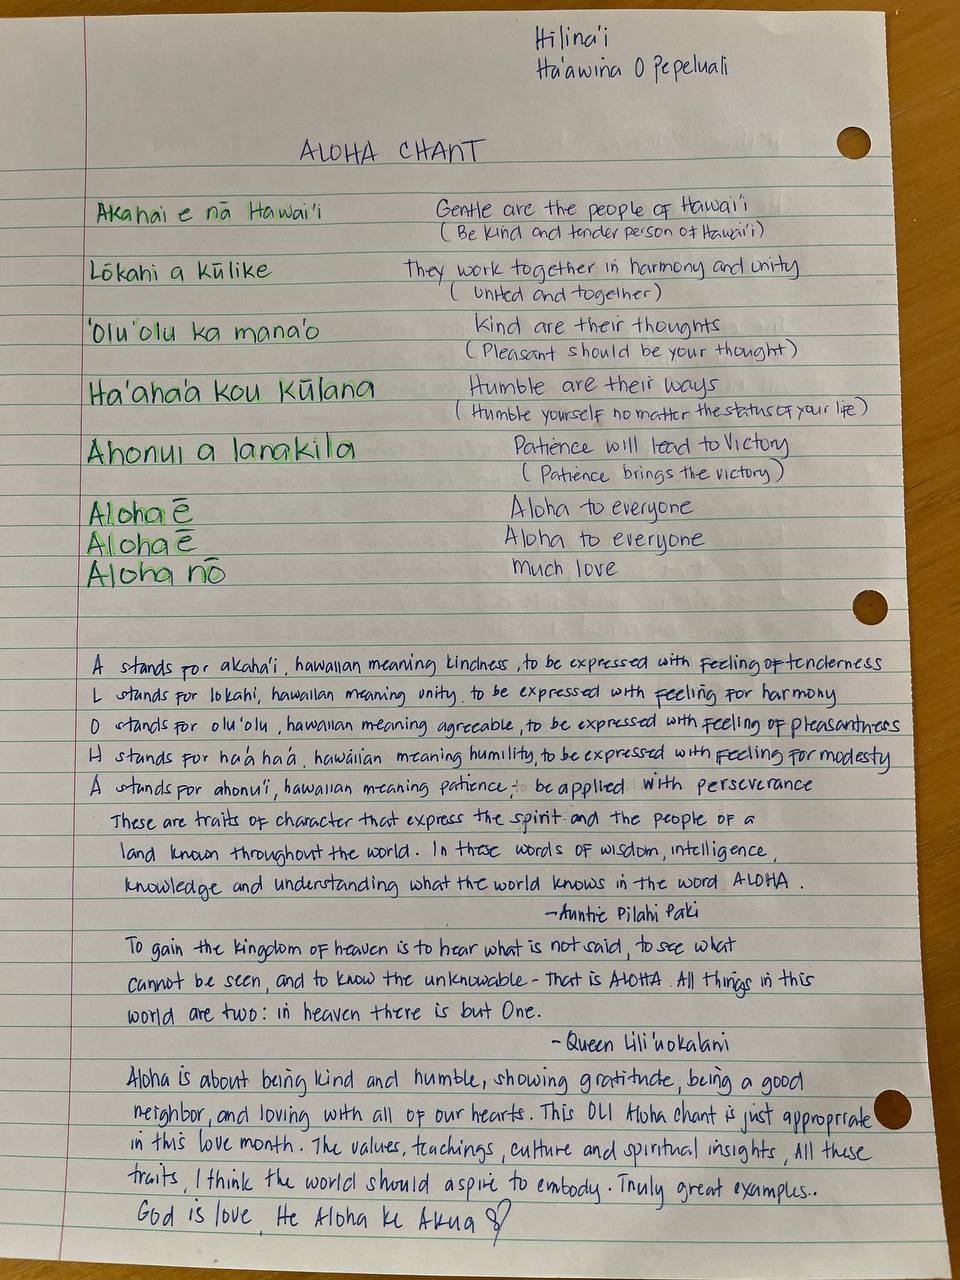 Hilina'i
Ha'awina O Pepeluali
ALOHA CHANT
Akahai e nā Hawai'i
Gentle are the people of Hawai'i
(Be kind and tender person of Hawai'i)
Lōkahi a kūlike
They work together in harmony and unity
(united and together)
'olu'olu ka mana'o
Kind are their thoughts
(Pleasant should be your thought)
Ha'aha'a kou kūlana
Humble are their ways
(Humble yourself no matter the status of your life)
Ahonui a lanakila
Patience will lead to victory
(Patience brings the victory)
Aloha ē
Aloha to everyone
Aloha ē
Aloha to everyone
Aloha nō
much love
A stands for akaha'i, hawaiian meaning kindness, to be expressed with feeling of tenderness
L stands for lokahi, hawaiian meaning unity, to be expressed with feeling for harmony
O stands for olu'olu, hawaiian meaning agreeable, to be expressed with feeling of pleasantness
H stands for ha'a ha'a, hawaiian meaning humility, to be expressed with feeling for modesty
A stands for ahonu'i, hawaiian meaning patience, to be applied with perseverance
These are traits of character that express the spirit and the people of a
land known throughout the world. In these words of wisdom, intelligence,
knowledge and understanding what the world knows in the word ALOHA.
-Auntie Pilahi Paki
To gain the kingdom of heaven is to hear what is not said, to see what
cannot be seen, and to know the unknowable - That is ALOHA. All things in this
world are two: in heaven there is but One.
- Queen Lili'uokalani
Aloha is about being kind and humble, showing gratitude, being a good
neighbor, and loving with all of our hearts. This OLI Aloha chant is just appropriate
in this love month. The values, teachings, culture and spiritual insights, All these
traits, I think the world should aspire to embody. Truly great examples..
God is love, He Aloha Ke Akua